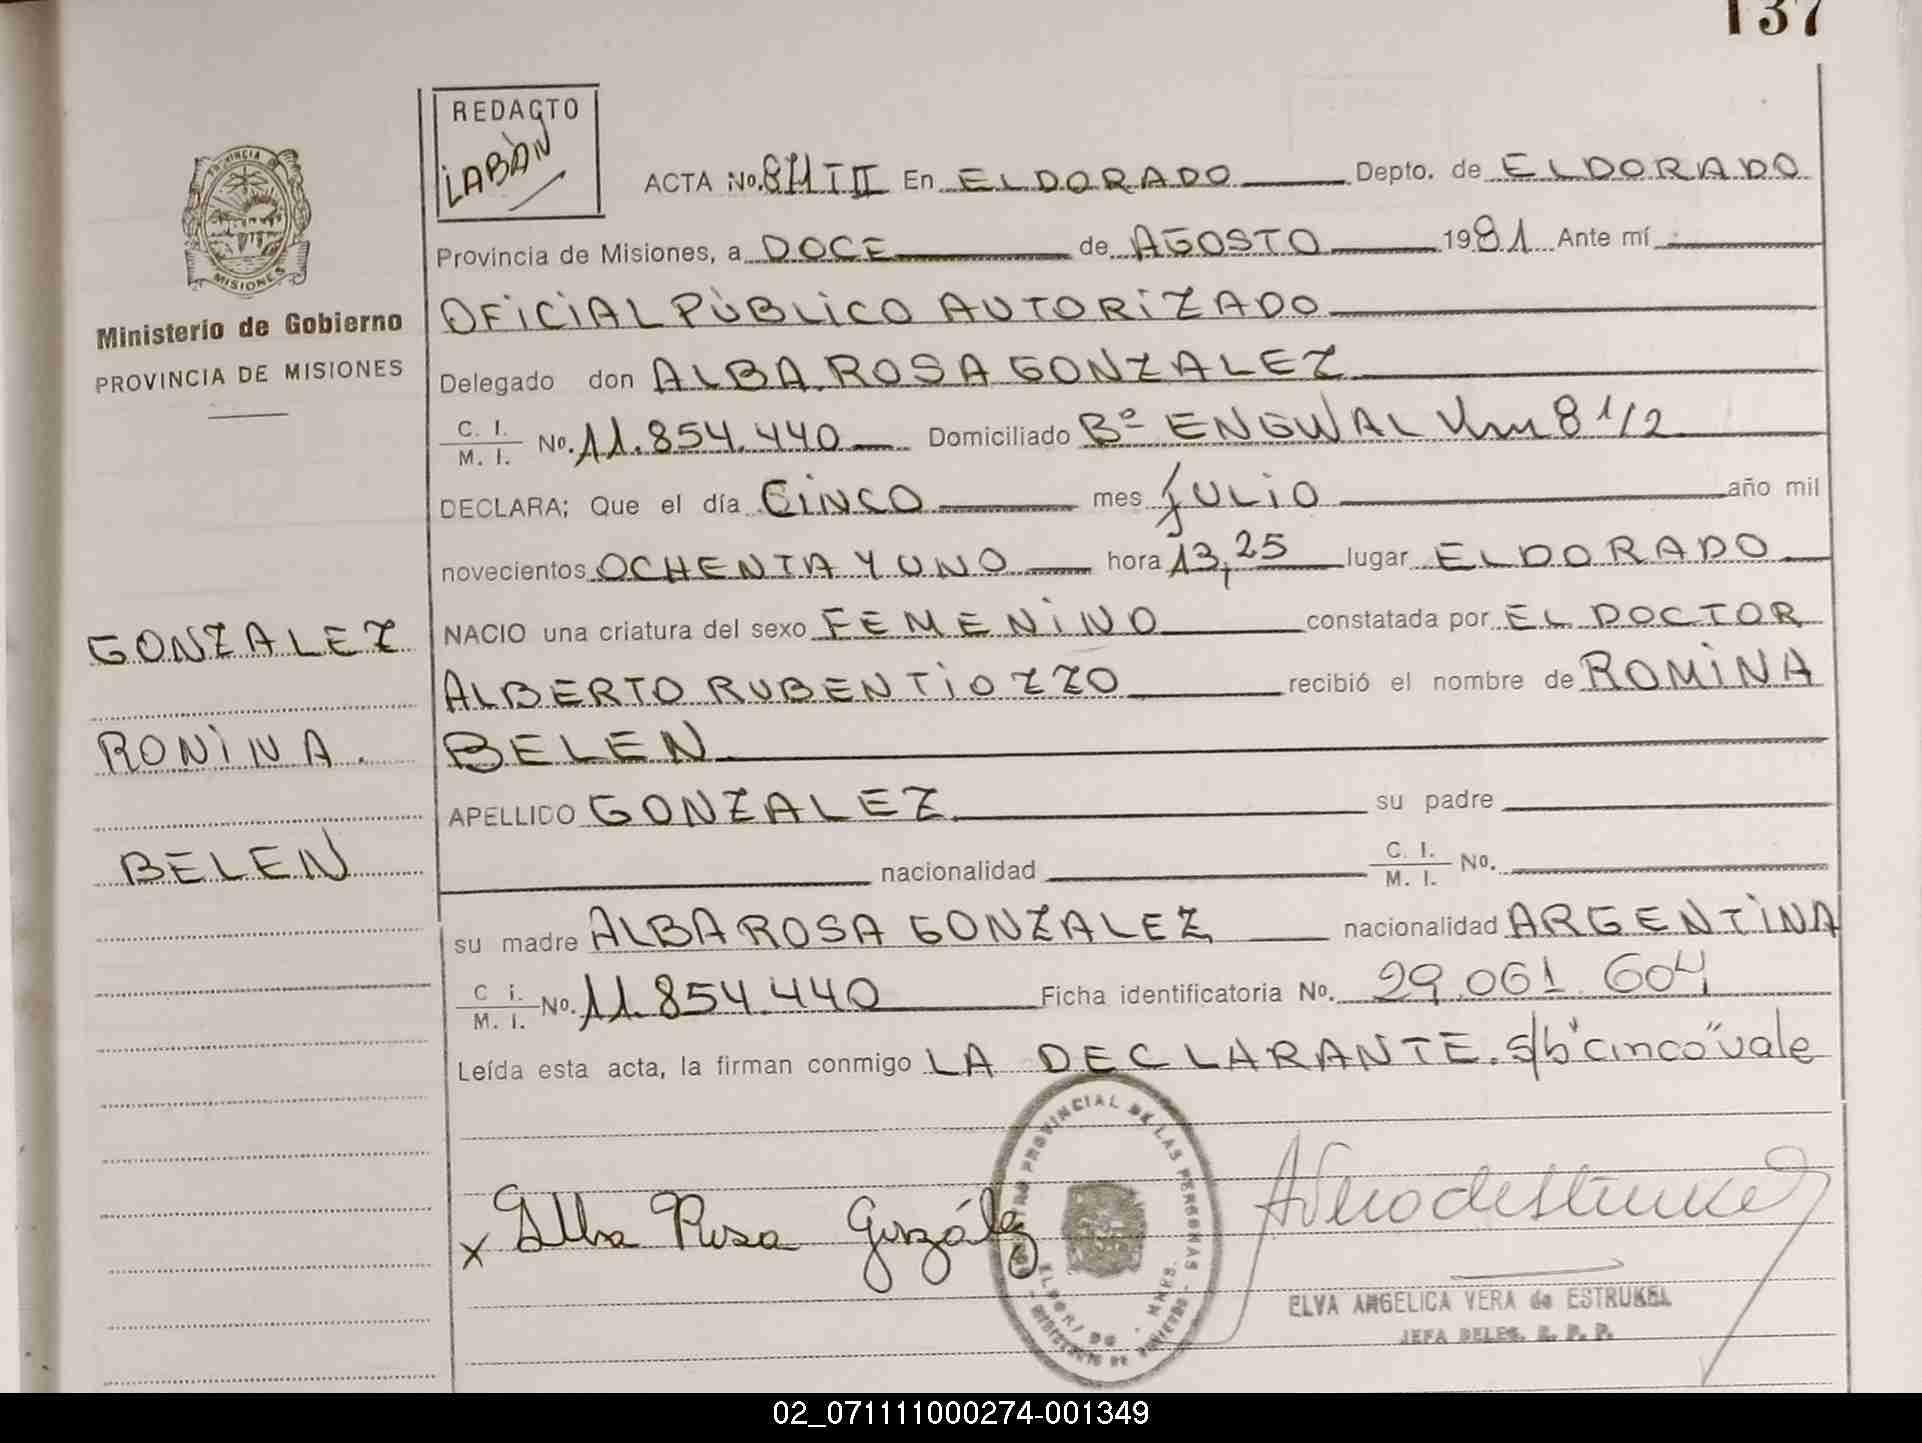 137
REDACTO
LABÁN
PROVINCIA DE
MISIONES
Ministerio de Gobierno
PROVINCIA DE MISIONES
ACTA No. 811 T II En ELDORADO Depto. de ELDORADO
Provincia de Misiones, a DOCE de AGOSTO 1981 Ante mí
OFICIAL PÚBLICO AUTORIZADO
Delegado don ALBA ROSA GONZALEZ
C. I.
M. I. No. 11.854.440 Domiciliado Bº ENGWAL Km 8 1/2
DECLARA; Que el día CINCO mes JULIO año mil
novecientos OCHENTA Y UNO hora 13,25 lugar ELDORADO
NACIO una criatura del sexo FEMENINO constatada por EL DOCTOR
ALBERTO RUBEN TIOZZO recibió el nombre de ROMINA
BELEN
APELLIDO GONZALEZ su padre
nacionalidad C. I.
M. I. No.
su madre ALBA ROSA GONZALEZ nacionalidad ARGENTINA
C i.
M. I. No. 11.854.440 Ficha identificatoria No. 29.061.604
Leída esta acta, la firman conmigo LA DECLARANTE. s/b "cinco" vale
GONZALEZ
RONINA.
BELEN
x Alba Rosa González
PROVINCIAL DE LAS PERSONAS
ELDORADO - MNES.
MINISTERIO DE GOBIERNO
ELVA ANGELICA VERA de ESTRUKEL
JEFA DELEG. R. P. P.
02_071111000274-001349